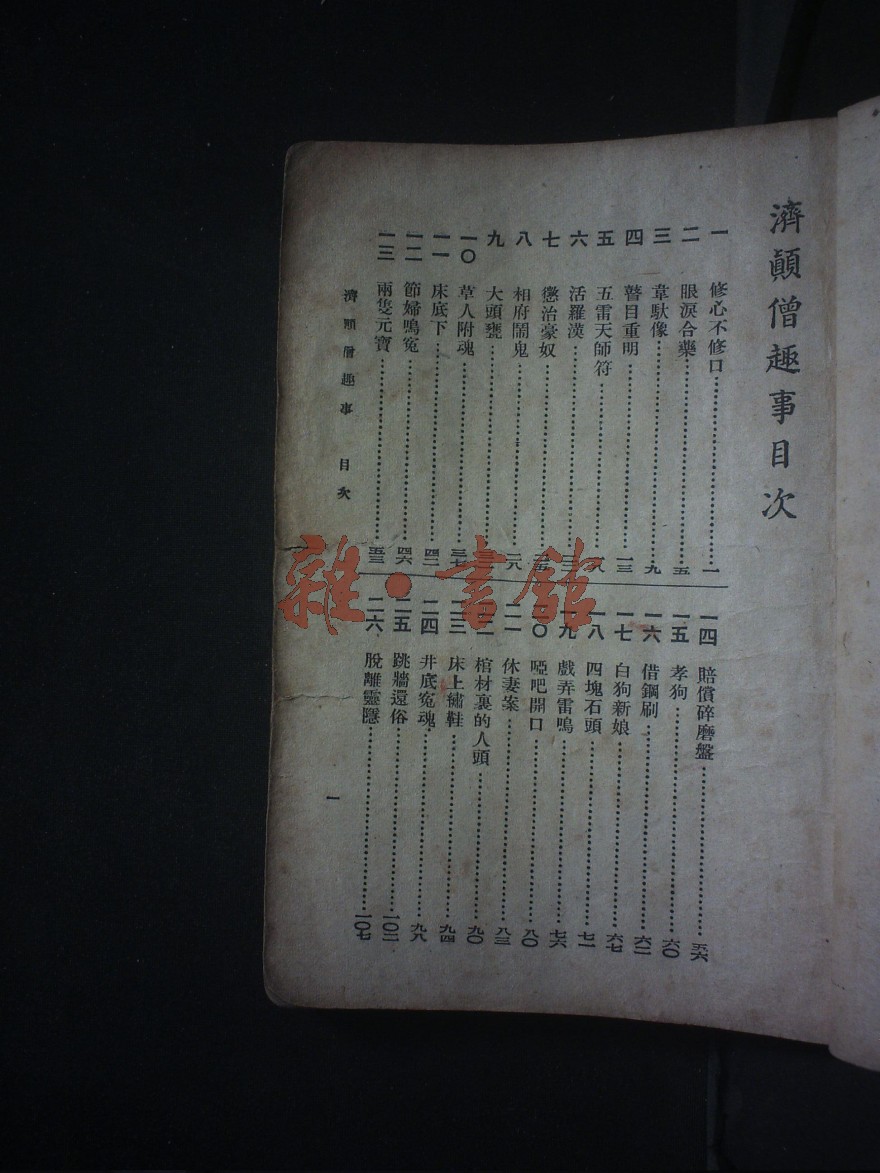 濟顚僧趣事目次
一 修心不修口 一
二 眼淚合藥 五
三 韋馱像 九
四 瞽目重明 一三
五 五雷天師符 一八
六 活羅漢
七 懲治豪奴
八 相府鬧鬼 二八
九 大頭甕
一〇 草人附魂 三七
一一 床底下 四二
一二 節婦鳴冤 四六
一三 兩隻元寶 五三
一四 賠償碎磨盤 五六
一五 孝狗 六〇
一六 借鋼刷 六二
一七 白狗新娘 六七
一八 四塊石頭 七一
一九 戲弄雷鳴 七六
二〇 啞吧開口 八〇
二一 休妻案 八三
二二 棺材裏的人頭 九〇
二三 床上繡鞋 九四
二四 井底冤魂 九八
二五 跳牆還俗 一〇二
二六 脫離靈隱 一〇七
濟顚僧趣事 目次
一
雜·書館